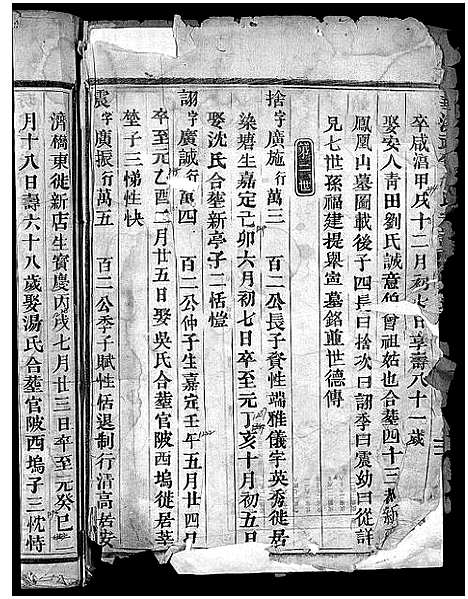 卒咸淳甲戌十二月初七日享壽八十一歲
娶安人青田劉氏誠意伯曾祖姑也合塟四十三都新
鳳凰山墓圖載後子四長曰捨次曰詡季曰震幼曰從詳
兄七世孫福建提舉㝎墓銘並世德傳
捨字廣施行萬三 百二公長子資性端雅儀宇英秀徙居
染碧生嘉定己卯六月初七日卒至元丁亥十月初五日
娶沈氏合塟新亭子二恬愷
詡字廣誠行萬四 百二公仲子生嘉定壬午五月廿四日
卒至元乙酉二月廿五日娶吳氏合塟官陂西塢徙居莘
塟子三悌性快
震字廣振行萬五 百二公季子賦性恬退制行清高居安
濟橋東徙新店生寳慶丙戌七月廿三日卒至元癸巳
月十八日壽六十八歲娶湯氏合塟官陂西塢子三忱恃